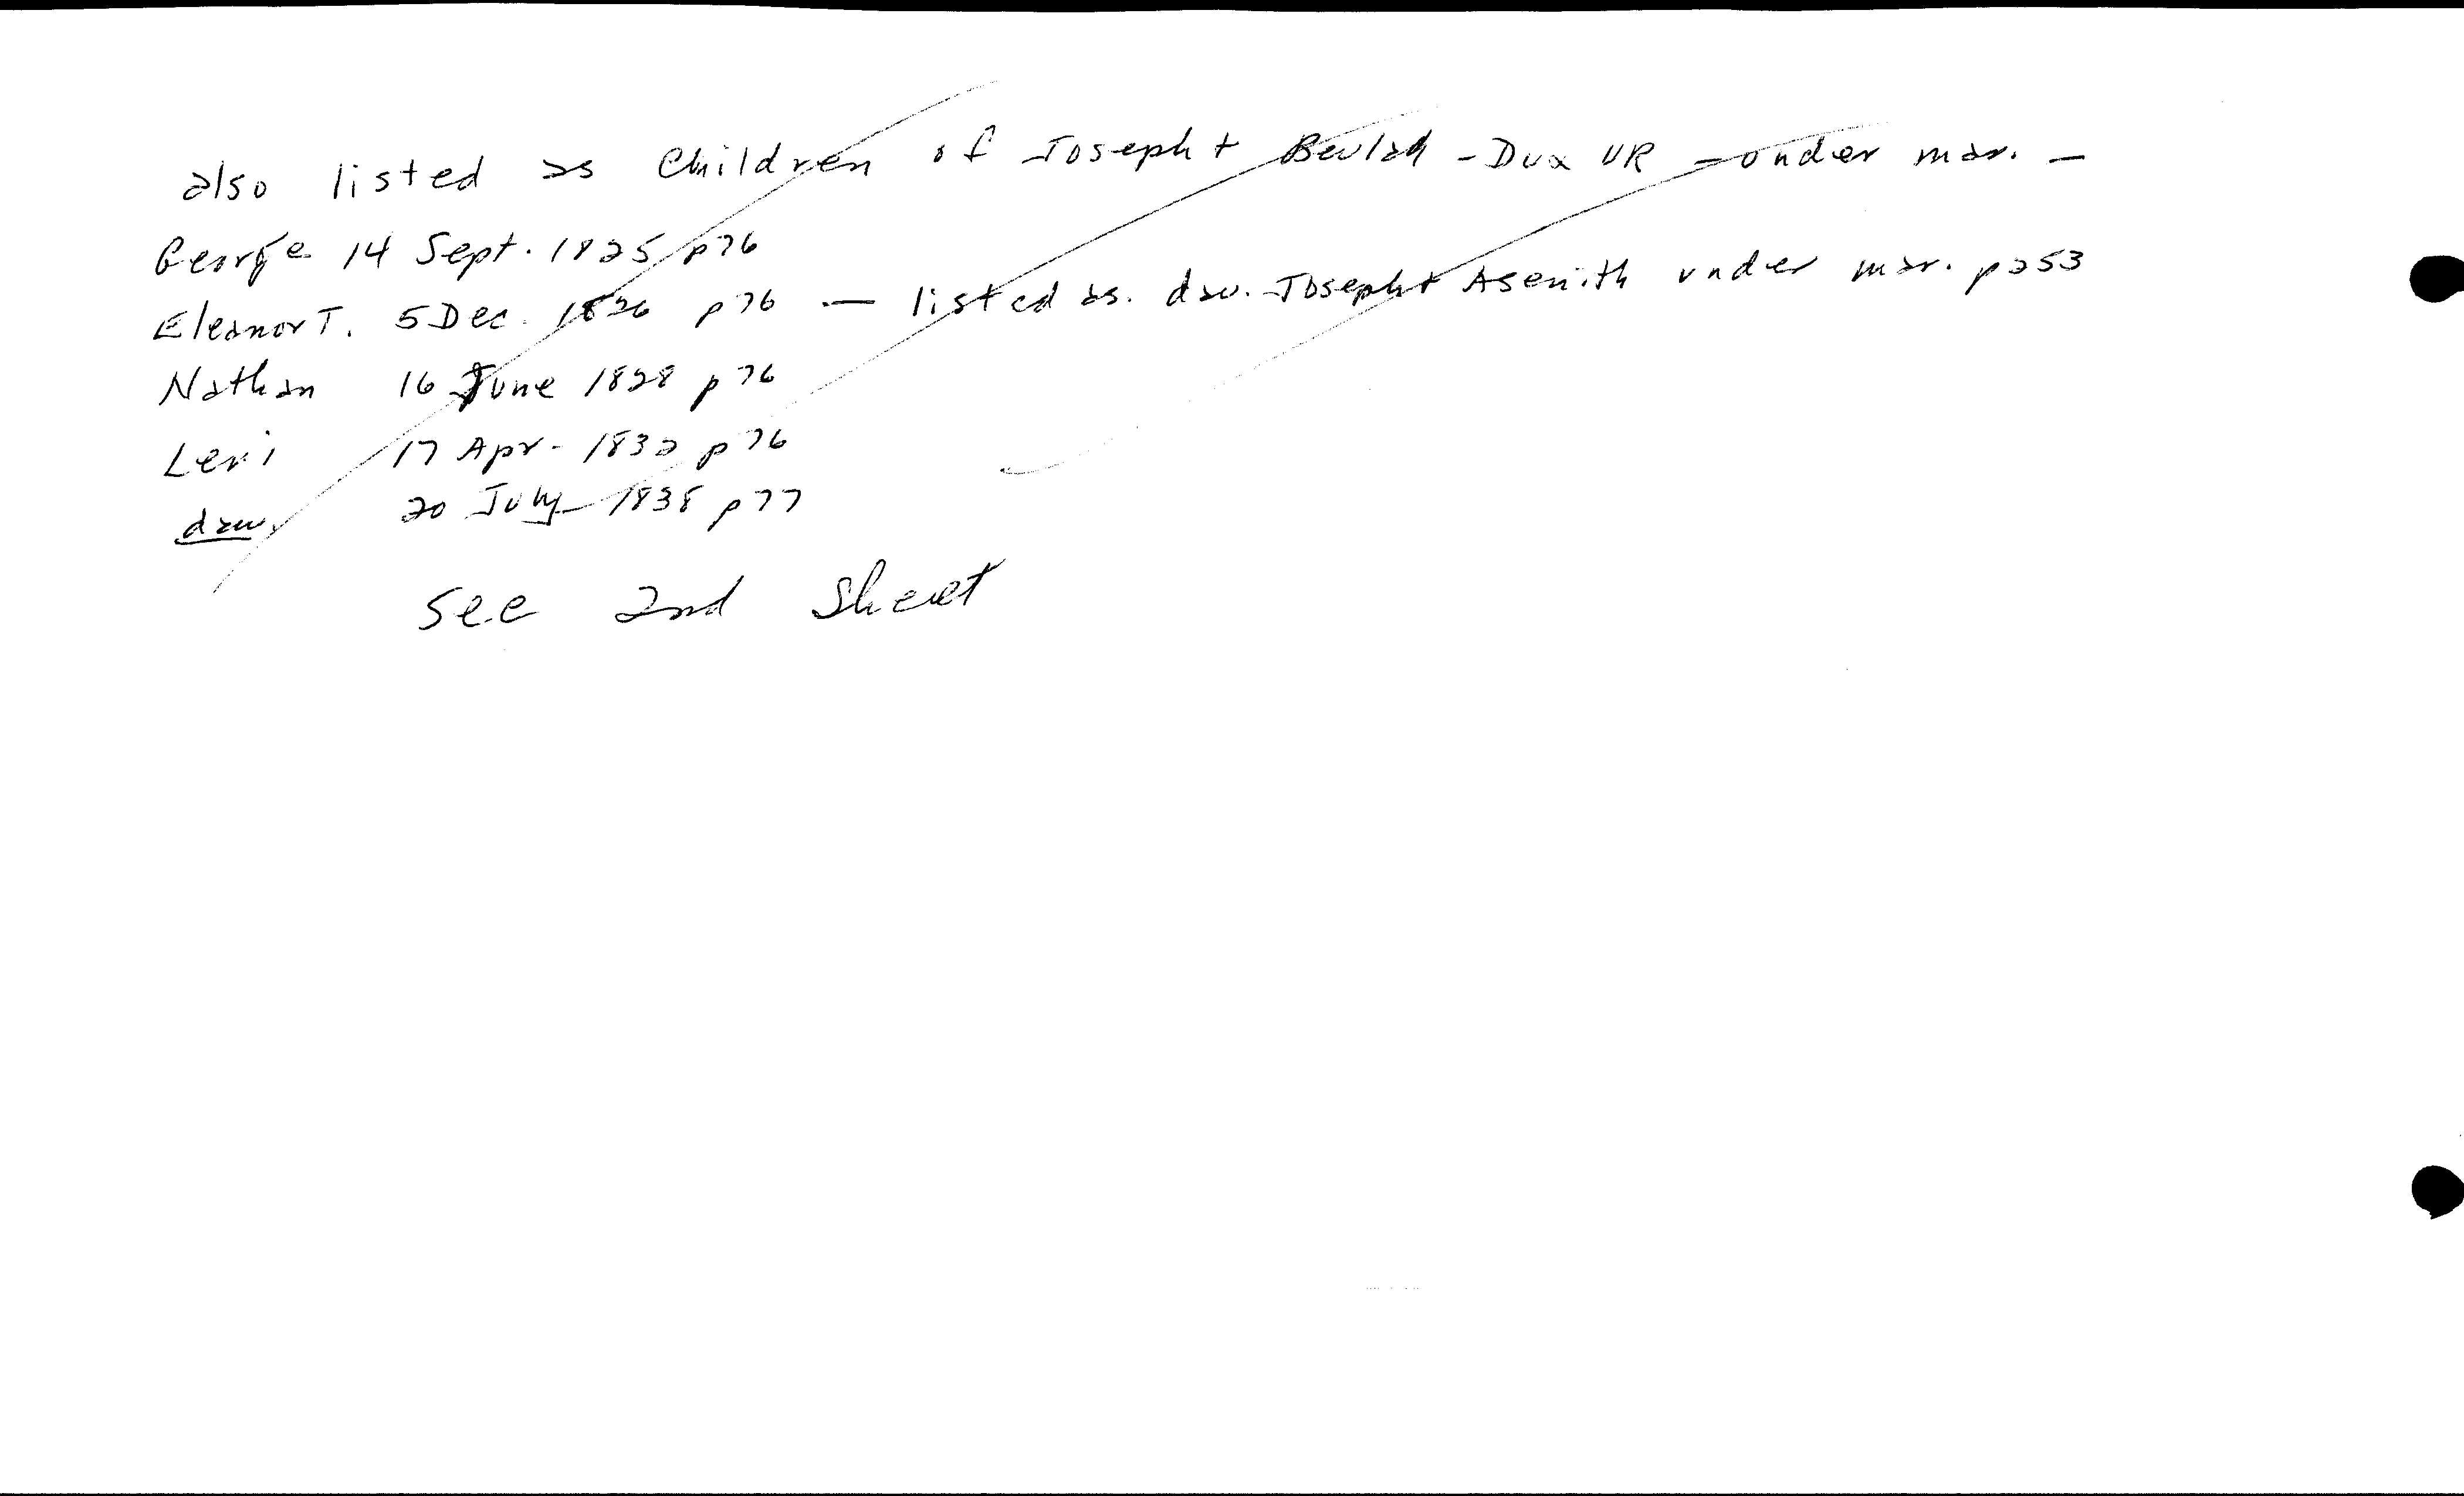 also listed as Children of Joseph + Beulah - Dux VR - under mar. -
George 14 Sept. 1825 p76
Eleanor T. 5 Dec. 1826 p76 - listed as. dau. Joseph + Asenith under mar. p253
Nathan 16 June 1828 p76
Levi 17 Apr - 1832 p76
dau. 20 July 1838 p77
See 2nd Sheet